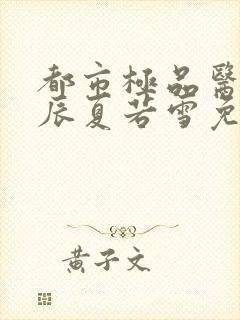 都市極品醫
辰夏若雪免
黃子文